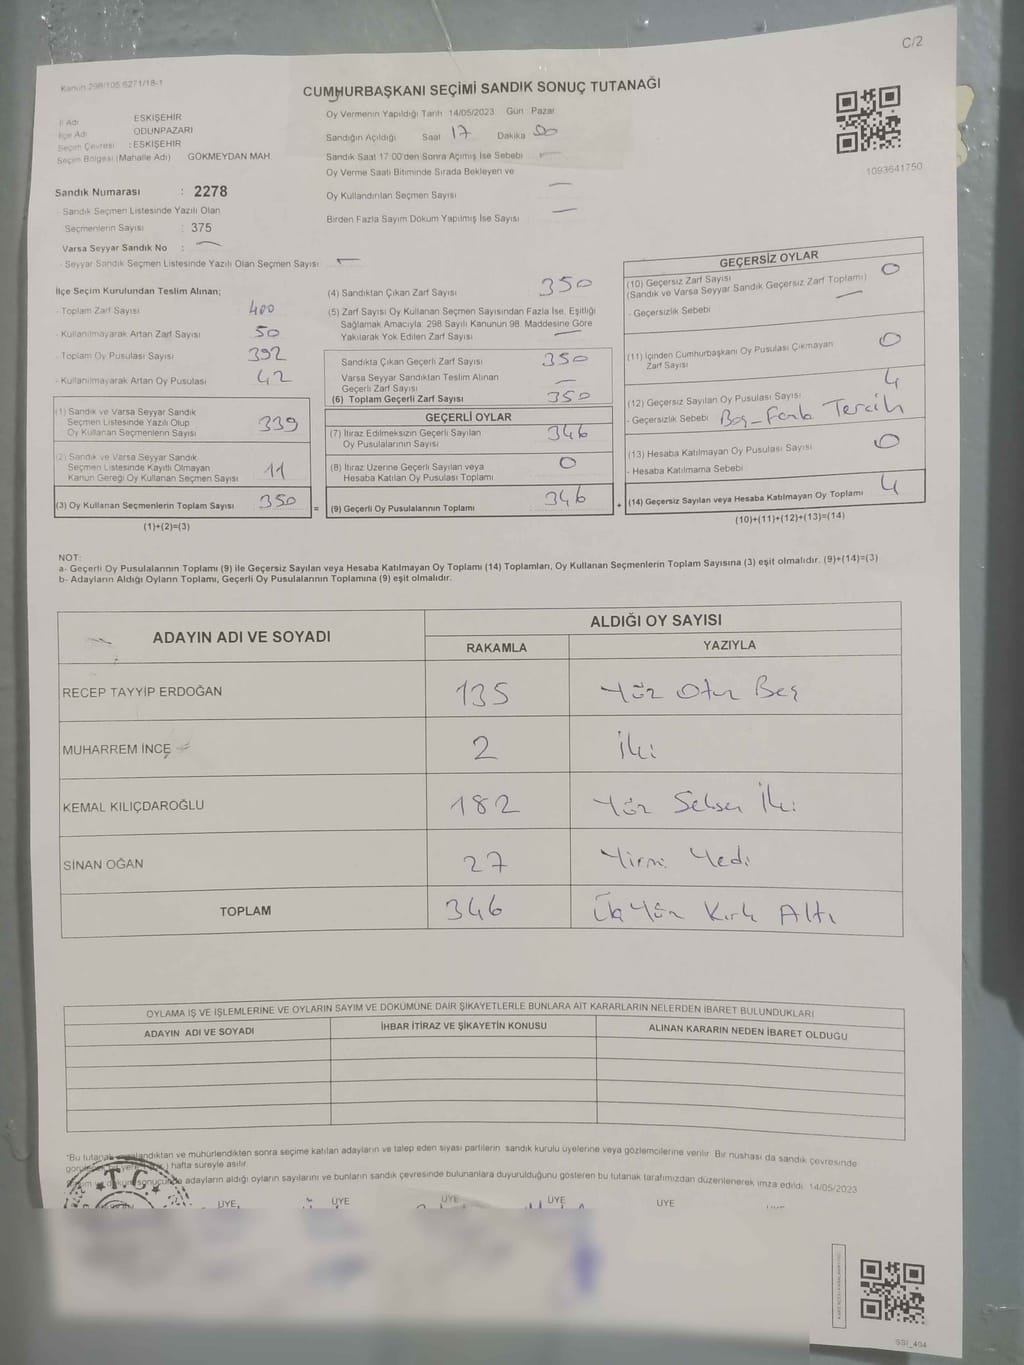 C/2
Kanun 298/105 6271/18-1
CUMHURBAŞKANI SEÇİMİ SANDIK SONUÇ TUTANAĞI
İl Adı ESKİŞEHİR
İlçe Adı ODUNPAZARI
Seçim Çevresi : ESKİŞEHİR
Seçim Bölgesi (Mahalle Adı) GÖKMEYDAN MAH.
Sandık Numarası : 2278
- Sandık Seçmen Listesinde Yazılı Olan
Seçmenlerin Sayısı : 375
Varsa Seyyar Sandık No : —
- Seyyar Sandık Seçmen Listesinde Yazılı Olan Seçmen Sayısı —
Oy Vermenin Yapıldığı Tarih 14/05/2023 Gün Pazar
Sandığın Açıldığı Saat 17 Dakika 00
Sandık Saat 17:00'den Sonra Açılmış İse Sebebi —
Oy Verme Saati Bitiminde Sırada Bekleyen ve
Oy Kullandırılan Seçmen Sayısı —
Birden Fazla Sayım Döküm Yapılmış İse Sayısı —
1093641750
İlçe Seçim Kurulundan Teslim Alınan;
- Toplam Zarf Sayısı 400
- Kullanılmayarak Artan Zarf Sayısı 50
- Toplam Oy Pusulası Sayısı 392
- Kullanılmayarak Artan Oy Pusulası 42
(1) Sandık ve Varsa Seyyar Sandık
Seçmen Listesinde Yazılı Olup
Oy Kullanan Seçmenlerin Sayısı 339
(2) Sandık ve Varsa Seyyar Sandık
Seçmen Listesinde Kayıtlı Olmayan
Kanun Gereği Oy Kullanan Seçmen Sayısı 11
(3) Oy Kullanan Seçmenlerin Toplam Sayısı 350
(1)+(2)=(3)
=
(4) Sandıktan Çıkan Zarf Sayısı 350
(5) Zarf Sayısı Oy Kullanan Seçmen Sayısından Fazla İse, Eşitliği
Sağlamak Amacıyla; 298 Sayılı Kanunun 98. Maddesine Göre
Yakılarak Yok Edilen Zarf Sayısı —
Sandıkta Çıkan Geçerli Zarf Sayısı 350
Varsa Seyyar Sandıktan Teslim Alınan
Geçerli Zarf Sayısı —
(6) Toplam Geçerli Zarf Sayısı 350
GEÇERLİ OYLAR
(7) İtiraz Edilmeksizin Geçerli Sayılan
Oy Pusulalarının Sayısı 346
(8) İtiraz Üzerine Geçerli Sayılan veya
Hesaba Katılan Oy Pusulası Toplamı 0
(9) Geçerli Oy Pusulalarının Toplamı 346
+
GEÇERSİZ OYLAR
(10) Geçersiz Zarf Sayısı 0
(Sandık ve Varsa Seyyar Sandık Geçersiz Zarf Toplamı)
- Geçersizlik Sebebi —
(11) İçinden Cumhurbaşkanı Oy Pusulası Çıkmayan
Zarf Sayısı 0
(12) Geçersiz Sayılan Oy Pusulası Sayısı 4
- Geçersizlik Sebebi Boş - Fazla Tercih
(13) Hesaba Katılmayan Oy Pusulası Sayısı 0
- Hesaba Katılmama Sebebi
(14) Geçersiz Sayılan veya Hesaba Katılmayan Oy Toplamı 4
(10)+(11)+(12)+(13)=(14)
NOT:
a- Geçerli Oy Pusulalarının Toplamı (9) ile Geçersiz Sayılan veya Hesaba Katılmayan Oy Toplamı (14) Toplamları, Oy Kullanan Seçmenlerin Toplam Sayısına (3) eşit olmalıdır. (9)+(14)=(3)
b- Adayların Aldığı Oyların Toplamı, Geçerli Oy Pusulalarının Toplamına (9) eşit olmalıdır.
ADAYIN ADI VE SOYADI ALDIĞI OY SAYISI
RAKAMLA YAZIYLA
RECEP TAYYİP ERDOĞAN 135 Yüz Otuz Beş
MUHARREM İNCE 2 İki
KEMAL KILIÇDAROĞLU 182 Yüz Seksen İki
SİNAN OĞAN 27 Yirmi Yedi
TOPLAM 346 Üç Yüz Kırk Altı
OYLAMA İŞ VE İŞLEMLERİNE VE OYLARIN SAYIM VE DÖKÜMÜNE DAİR ŞİKAYETLERLE BUNLARA AİT KARARLARIN NELERDEN İBARET BULUNDUKLARI
ADAYIN ADI VE SOYADI İHBAR İTİRAZ VE ŞİKAYETİN KONUSU ALINAN KARARIN NEDEN İBARET OLDUĞU
*Bu tutanak ve mühürlendikten sonra seçime katılan adayların ve talep eden siyasi partilerin sandık kurulu üyelerine veya gözlemcilerine verilir. Bir nüshası da sandık çevresinde
hafta süreyle asılır.
adayların aldığı oyların sayılarını ve bunların sandık çevresinde bulunanlara duyurulduğunu gösteren bu tutanak tarafımızdan düzenlenerek imza edildi. 14/05/2023
T.C.
ÜYE ÜYE ÜYE ÜYE ÜYE
SSI_404